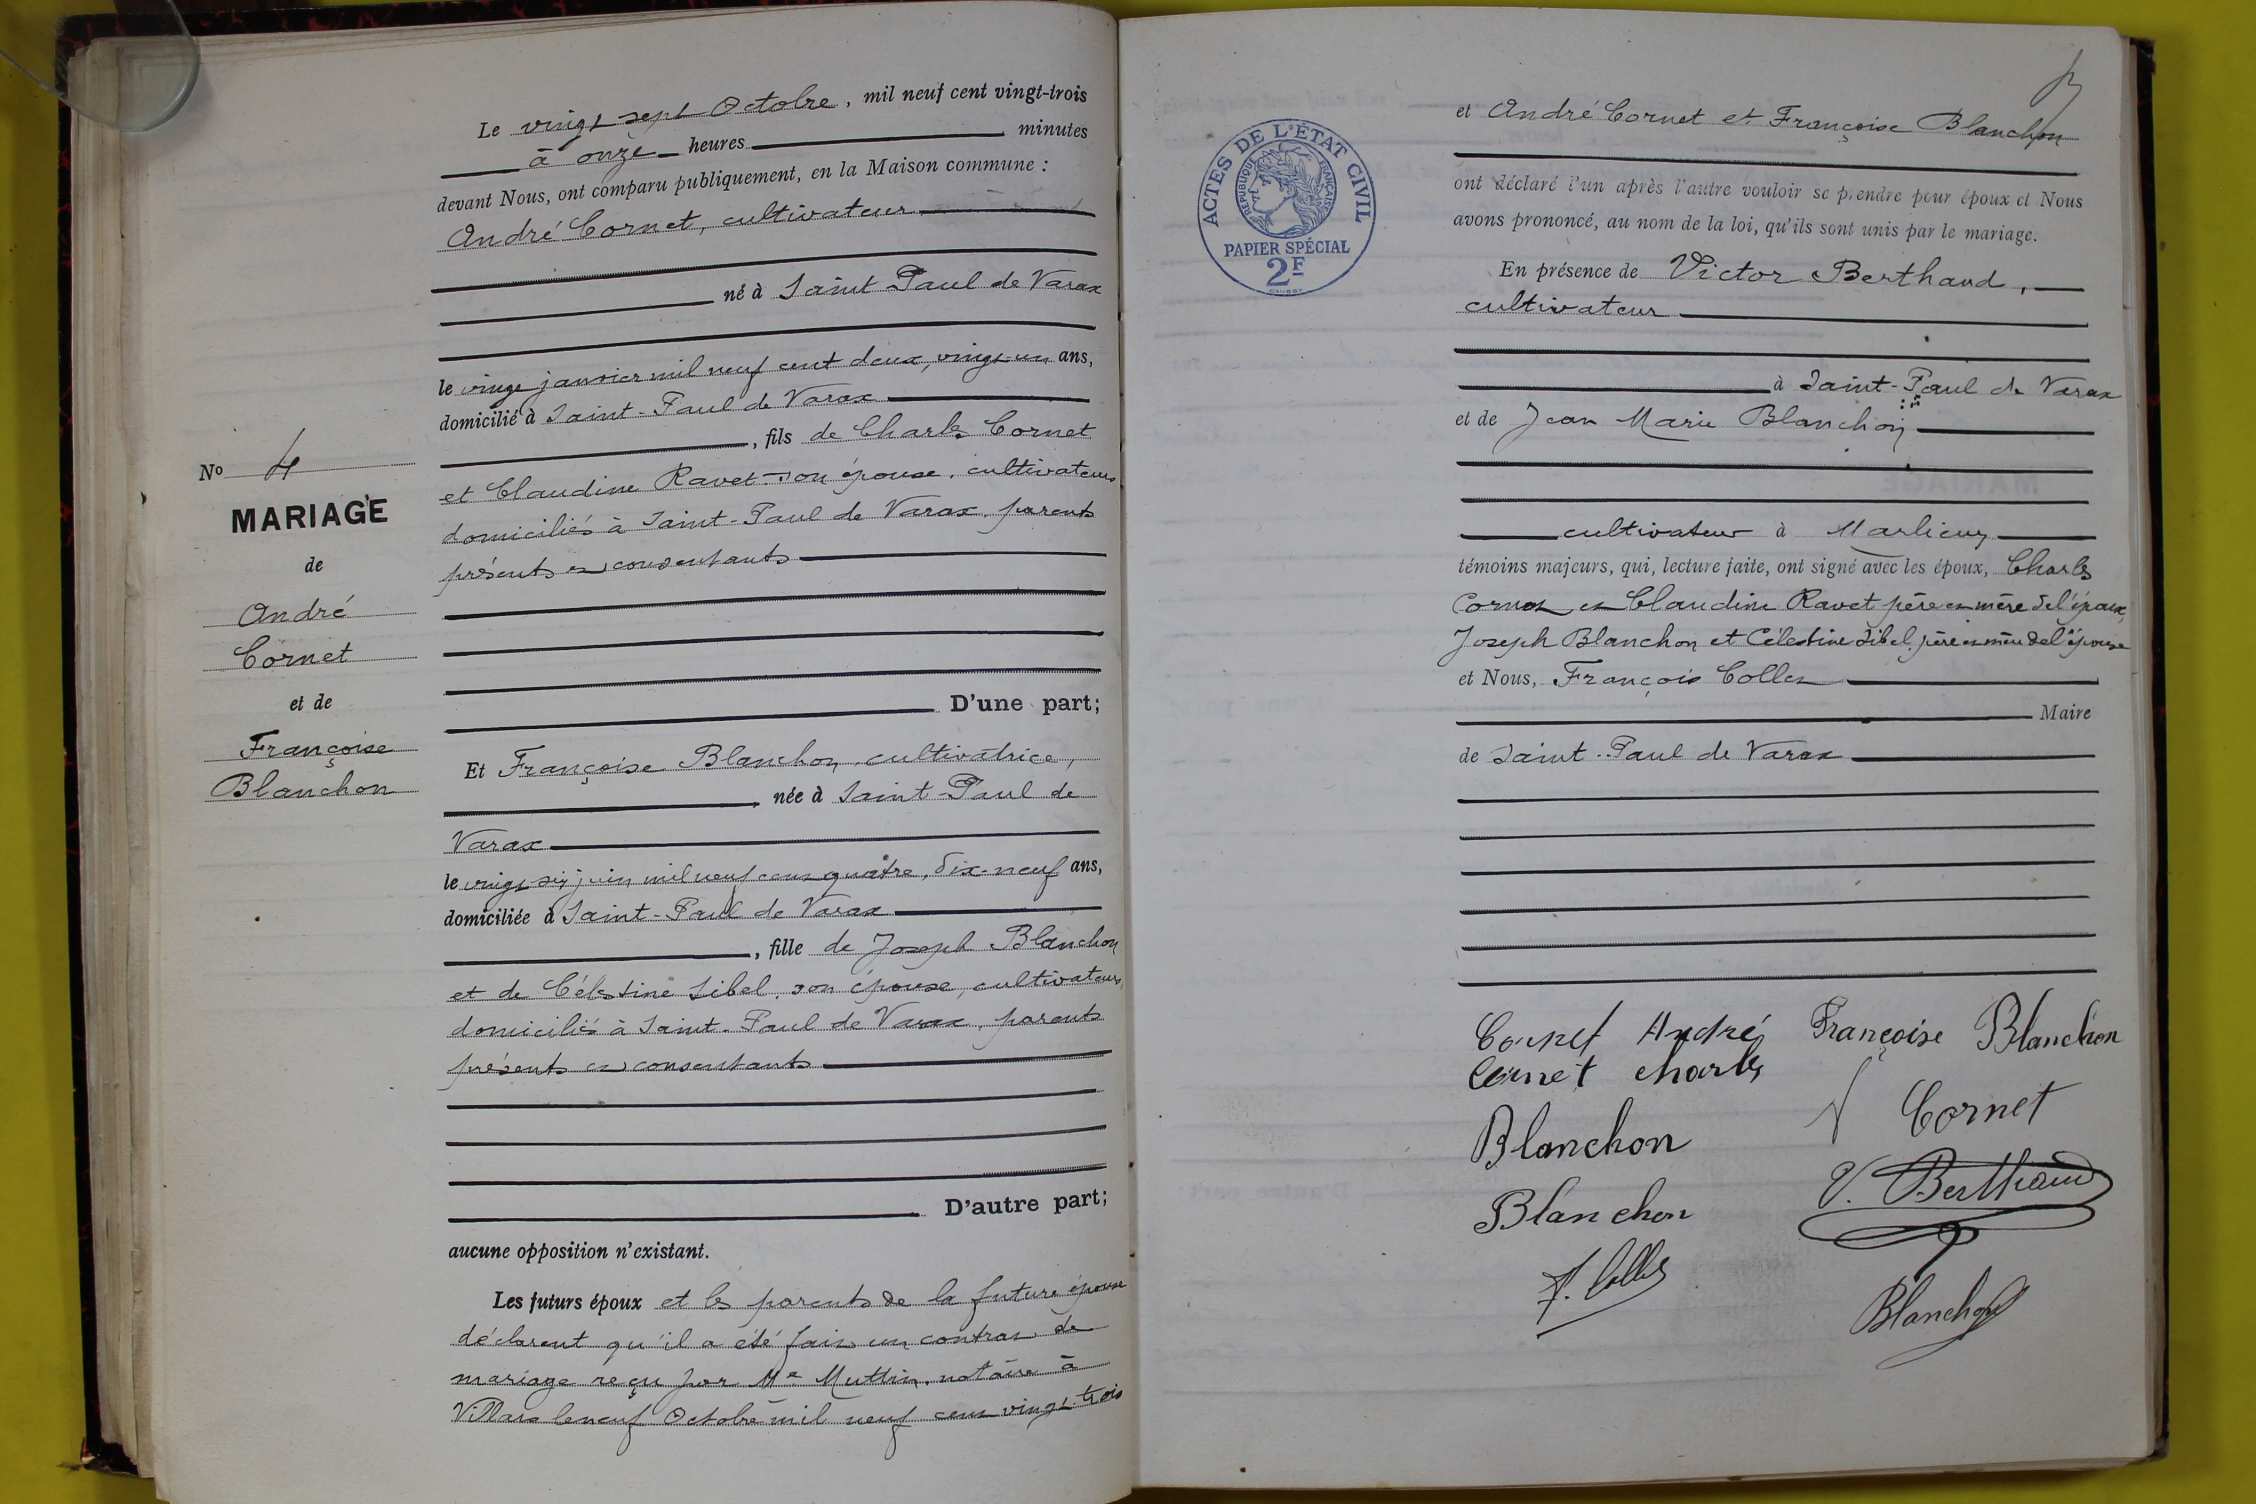 Le vingt sept Octobre, mil neuf cent vingt-trois
à onze heures minutes
devant Nous, ont comparu publiquement, en la Maison commune :
André Cornet, cultivateur
né à Saint Paul de Varax
le vingt janvier mil neuf cent deux, vingt un ans,
domicilié à Saint-Paul de Varax
, fils de Charles Cornet
et Claudine Ravet son épouse, cultivateurs
domiciliés à Saint-Paul de Varax, parents
présents et consentants
D'une part;
Et Françoise Blanchon, cultivatrice,
née à Saint-Paul de
Varax
le vingt six juin mil neuf cent quatre, dix-neuf ans,
domiciliée à Saint-Paul de Varax
, fille de Joseph Blanchon
et de Célestine Sibel, son épouse, cultivateurs,
domiciliés à Saint-Paul de Varax, parents
présents et consentants
D'autre part;
aucune opposition n'existant.
Les futurs époux et les parents de la future épouse
déclarent qu'il a été fait un contrat de
mariage reçu par Me Muttin, notaire à
Villars le neuf Octobre mil neuf cent vingt-trois
No 4
MARIAGE
de
André
Cornet
et de
Françoise
Blanchon
ACTES DE L'ÉTAT CIVIL
RÉPUBLIQUE FRANÇAISE
PAPIER SPÉCIAL
2F
et André Cornet et Françoise Blanchon
ont déclaré l'un après l'autre vouloir se prendre pour époux et Nous
avons prononcé, au nom de la loi, qu'ils sont unis par le mariage.
En présence de Victor Berthaud,
cultivateur
à Saint-Paul de Varax
et de Jean Marie Blanchon
cultivateur à Marlieux
témoins majeurs, qui, lecture faite, ont signé avec les époux, Charles
Cornet et Claudine Ravet père et mère de l'époux,
Joseph Blanchon et Célestine Sibel, père et mère de l'épouse
et Nous, François Collet
Maire
de Saint-Paul de Varax
Cornet André Françoise Blanchon
Cornet Charles
Cornet
Blanchon
V. Berthaud
Blanchon
F. Collet
Blanchon